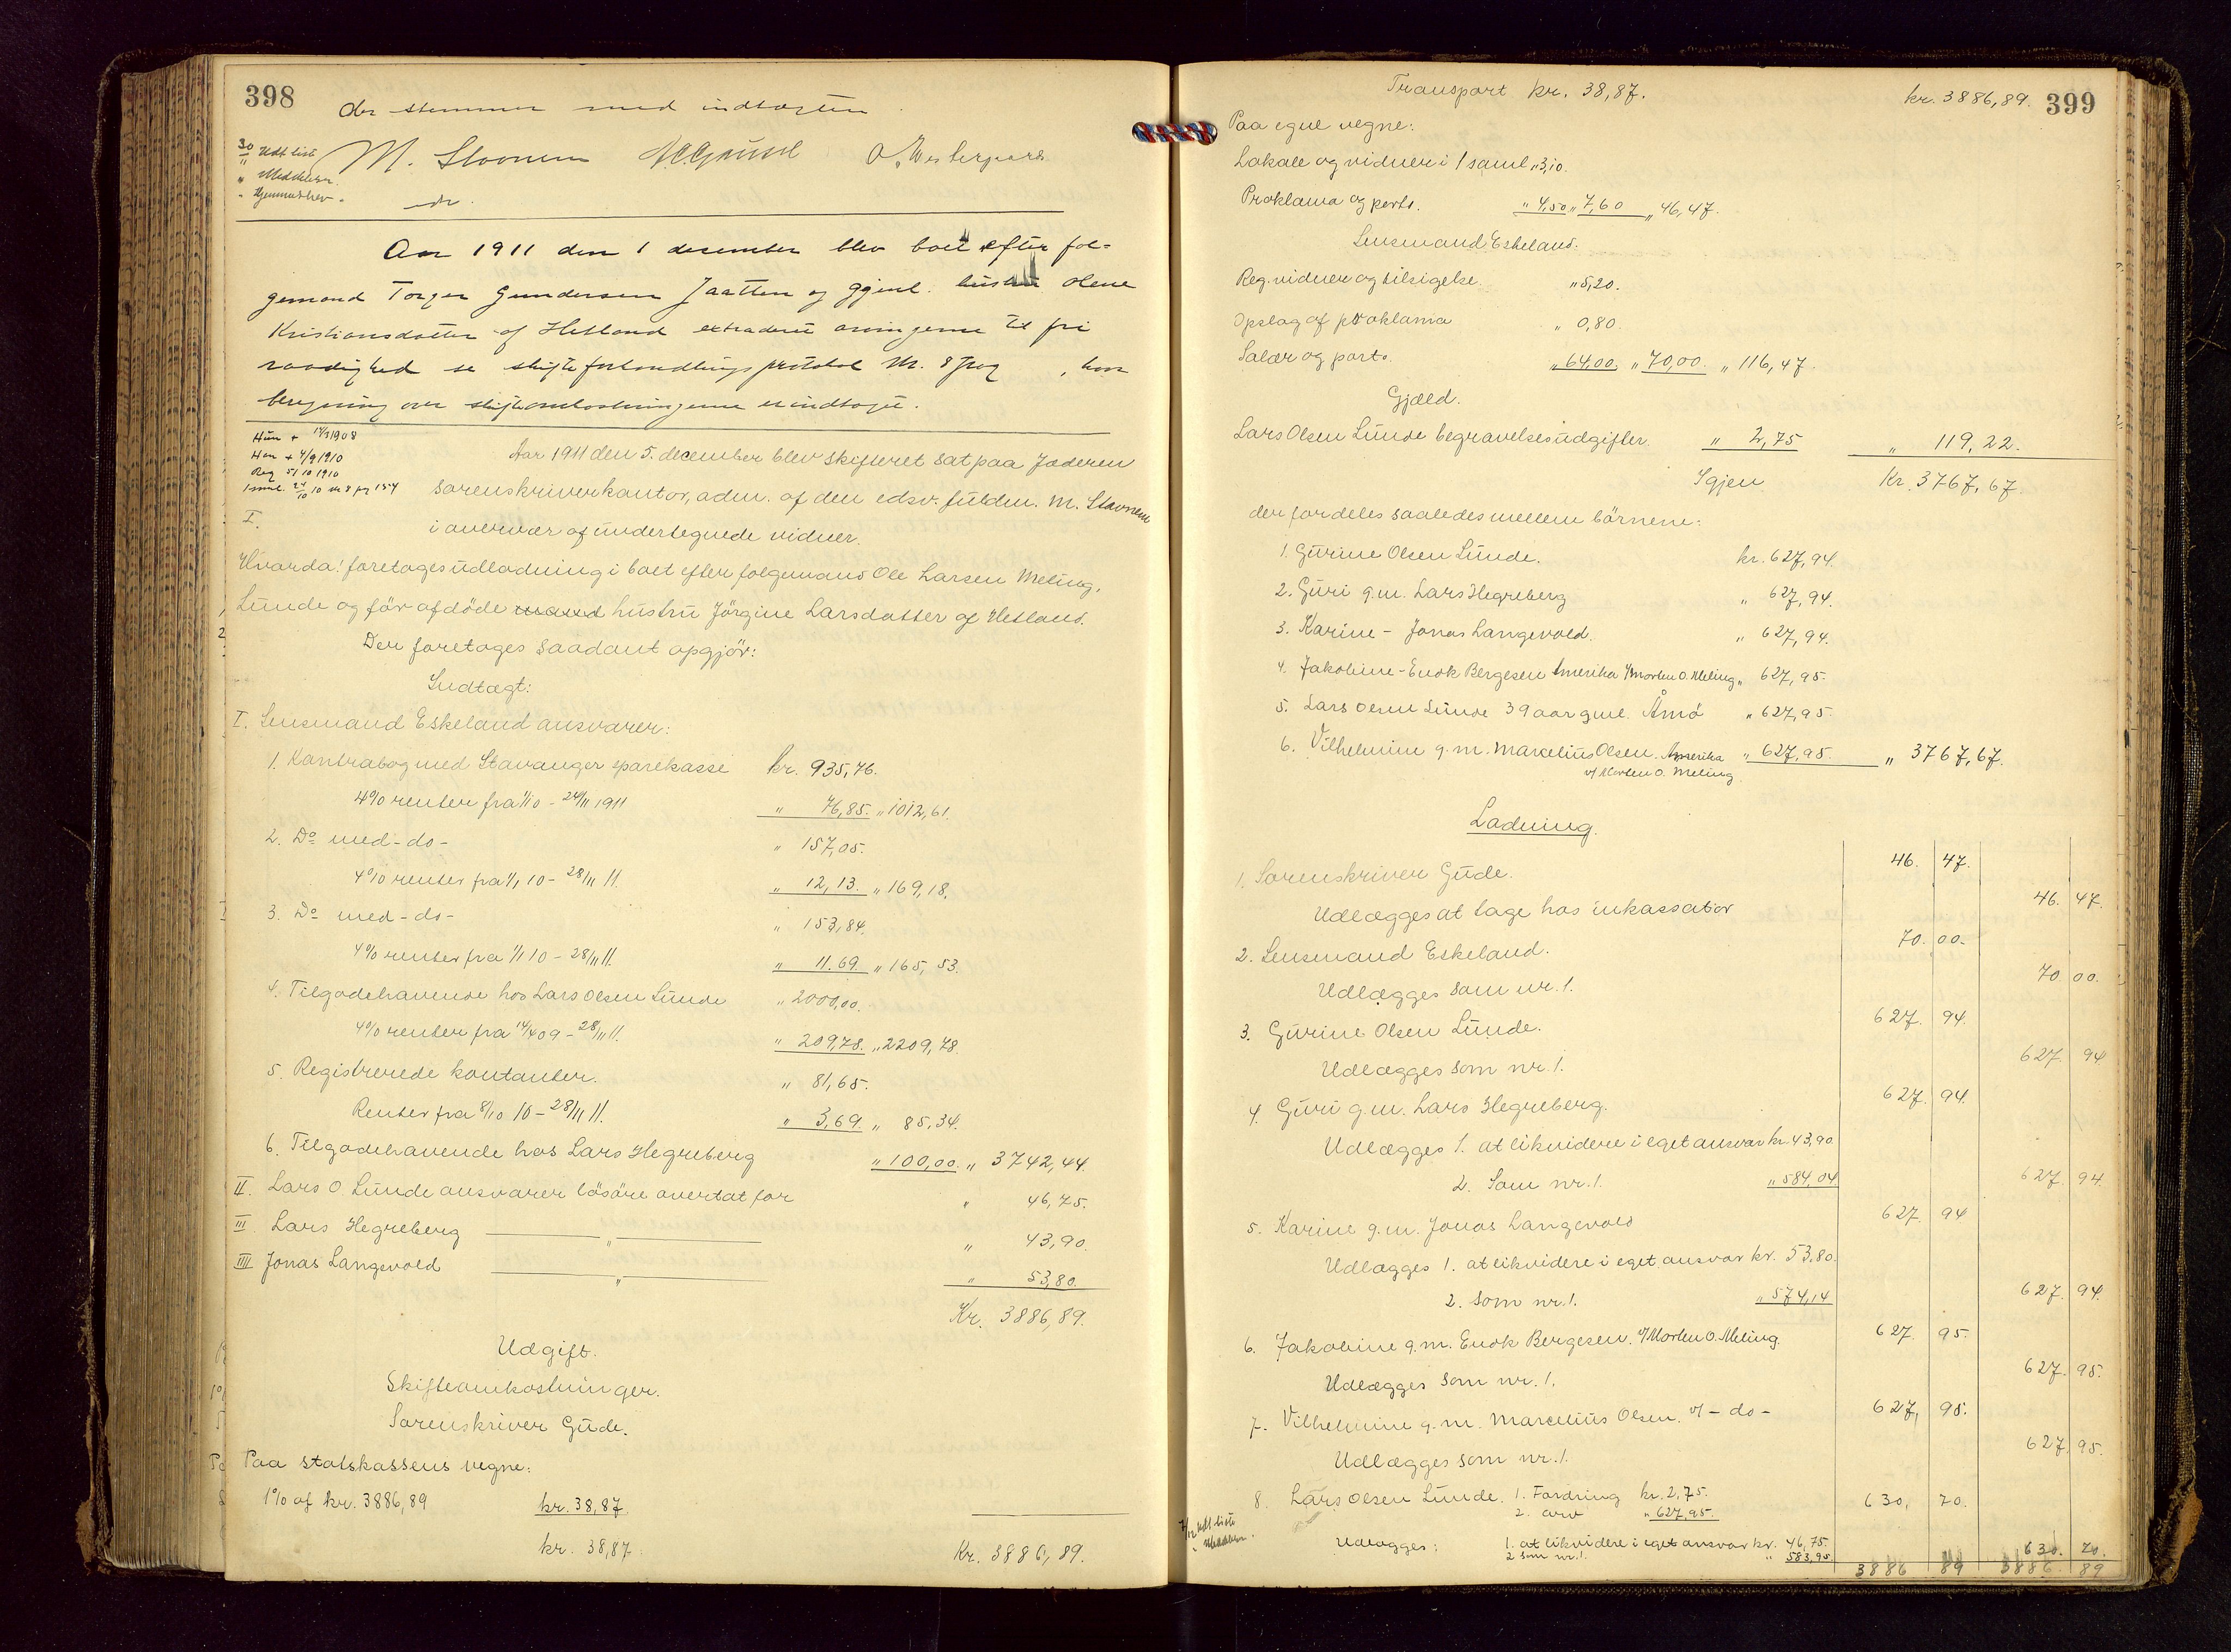 398
der stemmer med indtægten
30/11 Udt. liste
" Meddelelser
" Hjemmelsbrev
M. Stavnem
O. Westergaard
Aar 1911 den 1 desember blev boet efter fol-
gemand Torger Gundersen Jaatten og gjenl. hustru Olene
Kristiansdatter af Hetland extraderet arvingerne til fri
raadighed se skifteforhandlingsprotokol Nr. 8 pag , hvor
beregning over skifteomkostningerne er indtaget.
Hun + 14/3 1908
Han + 4/9 1910
Reg 5/10 1910
1 saml. 24/10 10 nr 8 pg 154
I.
Aar 1911 den 5. december blev skifteret sat paa Jæderen
sorenskriverkontor, adm. af den edsv. fuldm. M. Stavnem
i overvær af undertegnede vidner.
Hvorda! foretages udlodning i boet efter folgemand Ole Larsen Meling,
Lunde og før afdøde mand hustru Jörgine Larsdatter af Hetland.
Der foretages saadant opgjør:
Indtægt:
I. Lensmand Eskeland ansvarer:
1. Kontrabog med Stavanger sparekasse kr. 935,76.
4% renter fra 1/1 10 - 24/11 1911 " 76,85. " 1012,61.
2. Do med - do - " 157,05.
4% renter fra 1/1 10 - 28/11 11. " 12,13. " 169,18.
3. Do med - do - " 153,84.
4% renter fra 1/1 10 - 28/11 11. " 11.69. " 165,53.
4. Tilgodehavende hos Lars Olsen Lunde " 2000,00.
4% renter fra 14/4 09 - 28/11 11. " 209,78. " 2209,78.
5. Registrerede kontanter. " 81,65.
Renter fra 8/10 10 - 28/11 11. " 3,69. " 85,34.
6. Tilgodehavende hos Lars Hegreberg " 100,00. " 3742,44.
II. Lars O. Lunde ansvarer løsøre overtat for " 46,75.
III Lars Hegreberg " " 43,90.
IIII Jonas Langevold " " 53,80.
Kr. 3886,89.
Udgift.
Skifteomkostninger.
Sorenskriver Gude.
Paa statskassens vegne:
1% af kr. 3886,89 kr. 38,87.
kr. 38,87. Kr. 3886,89.
Transport kr. 38,87. kr. 3886,89. 399
Paa egne vegne:
Lokale og vidner i 1 saml. " 3,10.
Proklama og porto. " 4,50 " 7,60 " 46,47.
Lensmand Eskeland.
Reg. vidner og tilsigelse. " 5,20.
Opslag af proklama " 0,80.
Salær og porto. " 64,00. " 70,00. " 116,47.
Gjæld.
Lars Olsen Lunde begravelsesudgifter. " 2,75 " 119,22.
Igjen Kr. 3767,67.
der fordeles saaledes mellem börnene:
1. Gurine Olsen Lunde. kr. 627,94.
2. Guri g.m. Lars Hegreberg " 627,94.
3. Karine - Jonas Langevold. " 627,94.
4. Jakobine - Endk Bergesen Amerika v/Morten O. Meling " 627,95.
5. Lars Olsen Lunde 39 aar gml. Åmø " 627,95.
6. Vilhelmine g.m. Marcelius Olsen. Amerika " 627,95. " 3767,67.
v/ Morten O. Meling
Lodning.
1. Sorenskriver Gude. 46. 47.
Udlægges at tage hos inkassator 46. 47.
2. Lensmand Eskeland. 70. 00.
Udlægges som nr. 1. 70 00.
3. Gurine Olsen Lunde. 627. 94.
Udlægges som nr. 1. 627. 94
4. Guri g.m. Lars Hegreberg. 627. 94.
Udlægges 1. at likvidere i eget ansvar kr 43,90
2. Som nr. 1. " 584,04 627. 94.
5. Karine g.m. Jonas Langevold 627. 94
Udlægges 1. at likvidere i eget ansvar kr. 53,80.
2. som nr. 1. " 574,14 627. 94.
6. Jakobine g.m. Endk Bergesen. v/Morten O. Meling. 627. 95.
Udlægges som nr. 1. 627. 95.
7. Vilhelmine g.m. Marcelius Olsen. v/ - do - 627, 95.
Udlægges som nr. 1. 627. 95.
8. Lars Olsen Lunde. 1. Fordring kr. 2,75. 630, 70.
2. arv " 627,95.
7/12 Udt. liste
" Meddelelser.
Udlægges: 1. at likvidere i eget ansvar kr. 46,75.
2 som nr. 1. " 583,95 630. 70.
3886 89 3886 89